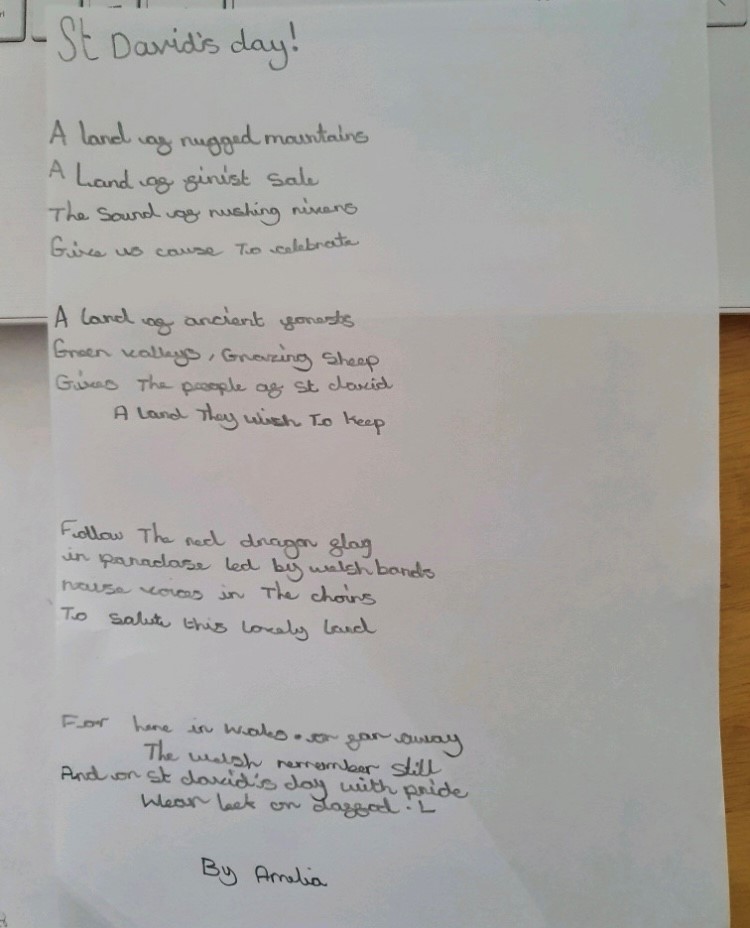 St David's day!
A land of rugged mountains
A Land of finist Sale
The Sound of rushing rivers
Gives us cause To celebrate
A land of ancient forests
Green valleys, Grazing Sheep
Gives The people of St david
A land They wish To keep
Follow The red dragon flag
in paradase led by welsh bands
raise voices in The choirs
To salute this lovely land
For here in wales or far away
The welsh remember still
And on St david's day with pride
Wear leek or daffod.L
By Amelia